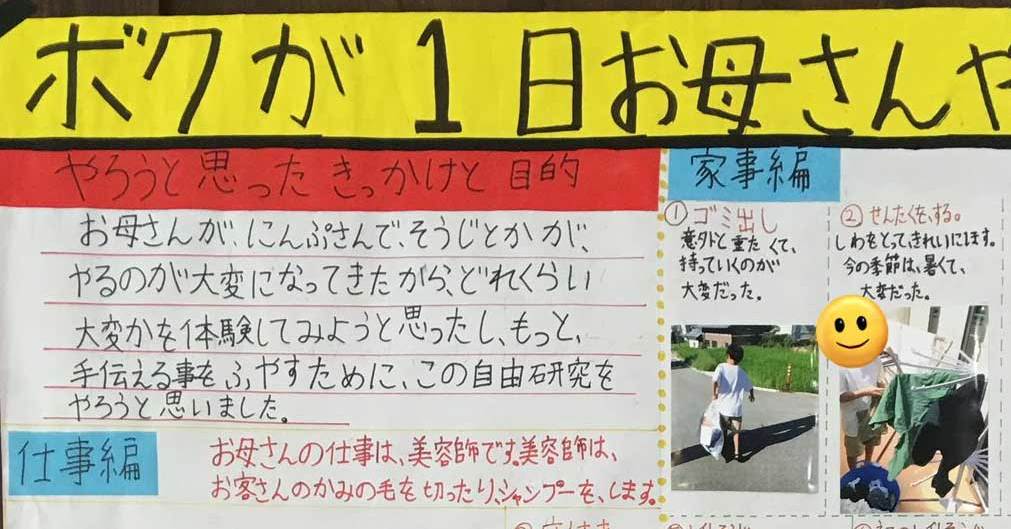 ボクが1日お母さんや
やろうと思ったきっかけと目的
お母さんが、にんぷさんで、そうじとかが、
やるのが大変になってきたから、どれくらい
大変かを体験してみようと思ったし、もっと、
手伝える事をふやすために、この自由研究を
やろうと思いました。
家事編
① ゴミ出し
意外と重たくて、
持っていくのが
大変だった。
② せんたくを、する。
しわをとって、きれいにします。
今の季節は、暑くて、
大変だった。
仕事編
お母さんの仕事は、美容師です。美容師は、
お客さんのかみの毛を切ったり、シャンプーを、します。